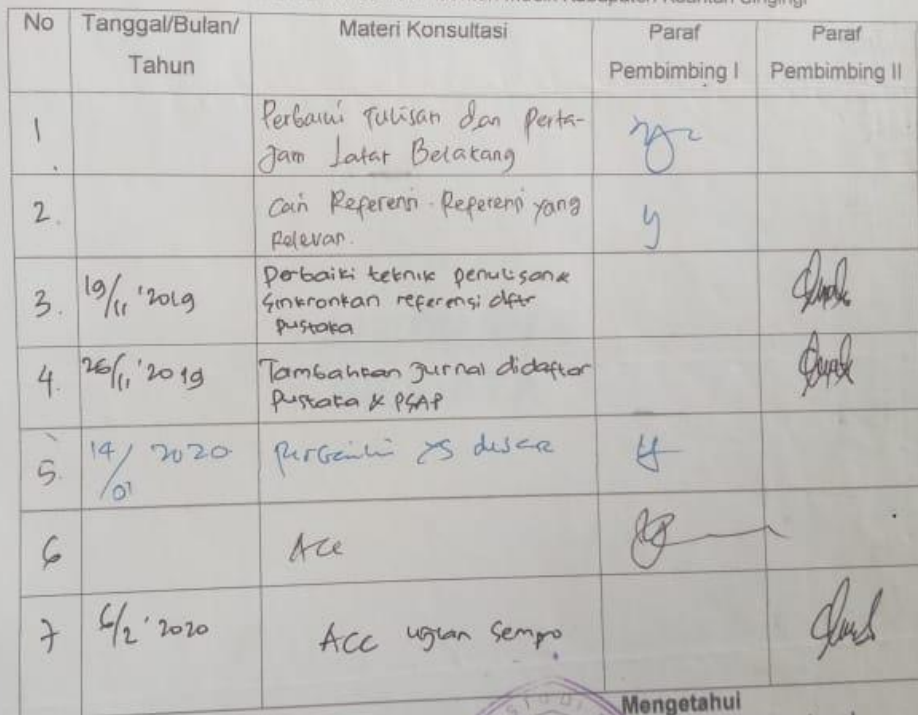 Kabupaten Kuantan Singingi
No Tanggal/Bulan/ Materi Konsultasi Paraf Paraf
Tahun Pembimbing I Pembimbing II
1. Perbaiki Tulisan dan Perta-
Jam Latar Belakang
2. Cari Referensi-Referensi yang
Relevan.
3. 19/11 '2019 Perbaiki teknik penulisan &
Sinkronkan referensi dftr
pustaka
4. 26/11 '2019 Tambahkan Jurnal didaftar
Pustaka & PSAP
5. 14/01 2020
6 Acc
7 6/2 '2020 ACC ujian Sempro
Mengetahui